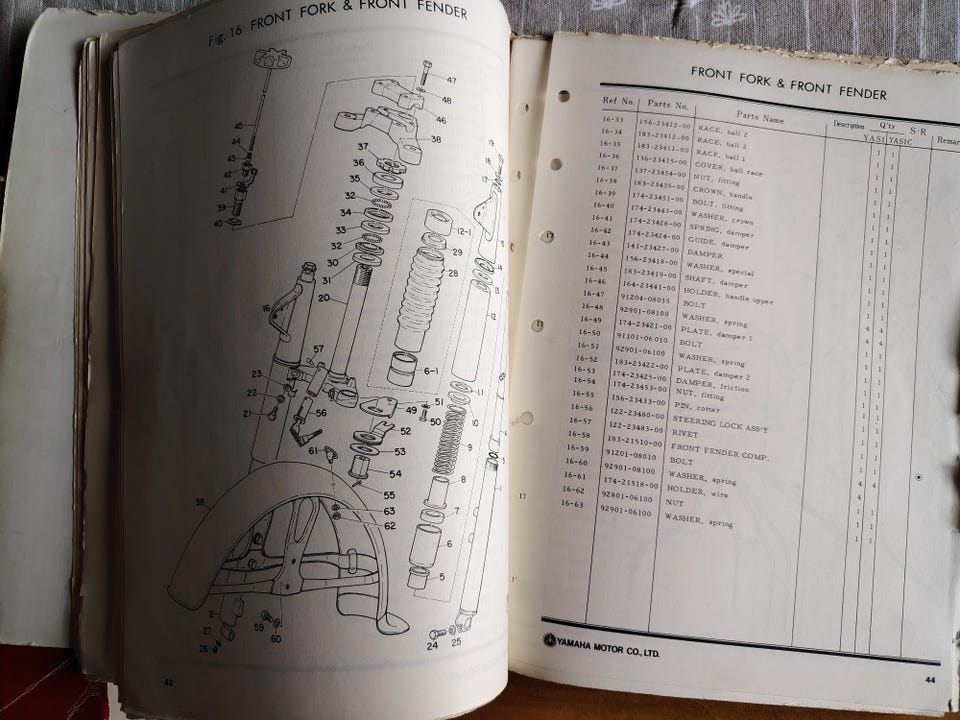 Fig. 16 FRONT FORK & FRONT FENDER
47
48
46
38
45
44
43
42
41
39
40
37
36
35
32
34
33
32
30
31
20
12-1
29
28
19
18
17
14
12
16
57
6-1
23
22
21
56
49
51
50
52
61
53
54
55
63
62
58
11
10
9
8
7
6
5
3
1
2
27
26
59
60
24
25
43
FRONT FORK & FRONT FENDER
Ref No. Parts No. Parts Name Description Q'ty S·R Remar
YAS1 YAS1C
16-33 156-23412-00 RACE, ball 2 1 1
16-34 183-23412-00 RACE, ball 2 1 1
16-35 183-23411-00 RACE, ball 1 1 1
16-36 136-23415-00 COVER, ball race 1 1
16-37 137-23454-00 NUT, fitting 1 1
16-38 183-23435-00 CROWN, handle 1 1
16-39 174-23451-00 BOLT, fitting 1 1
16-40 174-23443-00 WASHER, crown 1 1
16-41 174-23428-00 SPRING, damper 1 1
16-42 174-23424-00 GUIDE, damper 1 1
16-43 141-23427-00 DAMPER 1 1
16-44 156-23418-00 WASHER, special 1 1
16-45 183-23419-00 SHAFT, damper 1 1
16-46 164-23441-00 HOLDER, handle upper 1 1
16-47 91204-08035 BOLT 4 4
16-48 92901-08100 WASHER, spring 4 4
16-49 174-23421-00 PLATE, damper 1 1 1
16-50 91101-06010 BOLT 1 1
16-51 92901-06100 WASHER, spring 1 1
16-52 183-23422-00 PLATE, damper 2 1 1
16-53 174-23425-00 DAMPER, friction
16-54 174-23453-00 NUT, fitting 1 1
16-55 156-23433-00 PIN, cotter 1 1
16-56 122-23480-00 STEERING LOCK ASS'Y 1 1
16-57 122-23483-00 RIVET
16-58 183-21510-00 FRONT FENDER COMP. 1 1
16-59 91201-08010 BOLT 4 4
16-60 92901-08100 WASHER, spring 4 4
16-61 174-21518-00 HOLDER, wire 1 1
16-62 92801-06100 NUT 1 1
16-63 92901-06100 WASHER, spring 1 1
YAMAHA MOTOR CO., LTD.
44